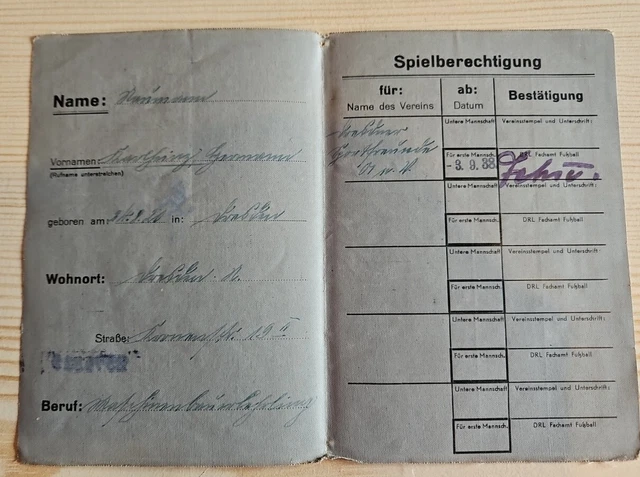 Name: Naumann
Vornamen: Karlheinz Hermann
(Rufname unterstreichen)
geboren am: in: Dresden
Wohnort: Dresden A.
Straße: 19 II
Beruf: Maschinenbauerlehrling
Spielberechtigung
für:
Name des Vereins
ab:
Datum
Bestätigung
Dresdner
Sportfreunde
01
Untere Mannschaft
Vereinsstempel und Unterschrift:
Für erste Mannsch.
DRL Fachamt Fußball
-3. 9. 38
Untere Mannschaft
Vereinsstempel und Unterschrift:
Für erste Mannsch.
DRL Fachamt Fußball
Untere Mannschaft
Vereinsstempel und Unterschrift:
Für erste Mannsch.
DRL Fachamt Fußball
Untere Mannschaft
Vereinsstempel und Unterschrift:
Für erste Mannsch.
DRL Fachamt Fußball
Untere Mannschaft
Vereinsstempel und Unterschrift:
Für erste Mannsch.
DRL Fachamt Fußball